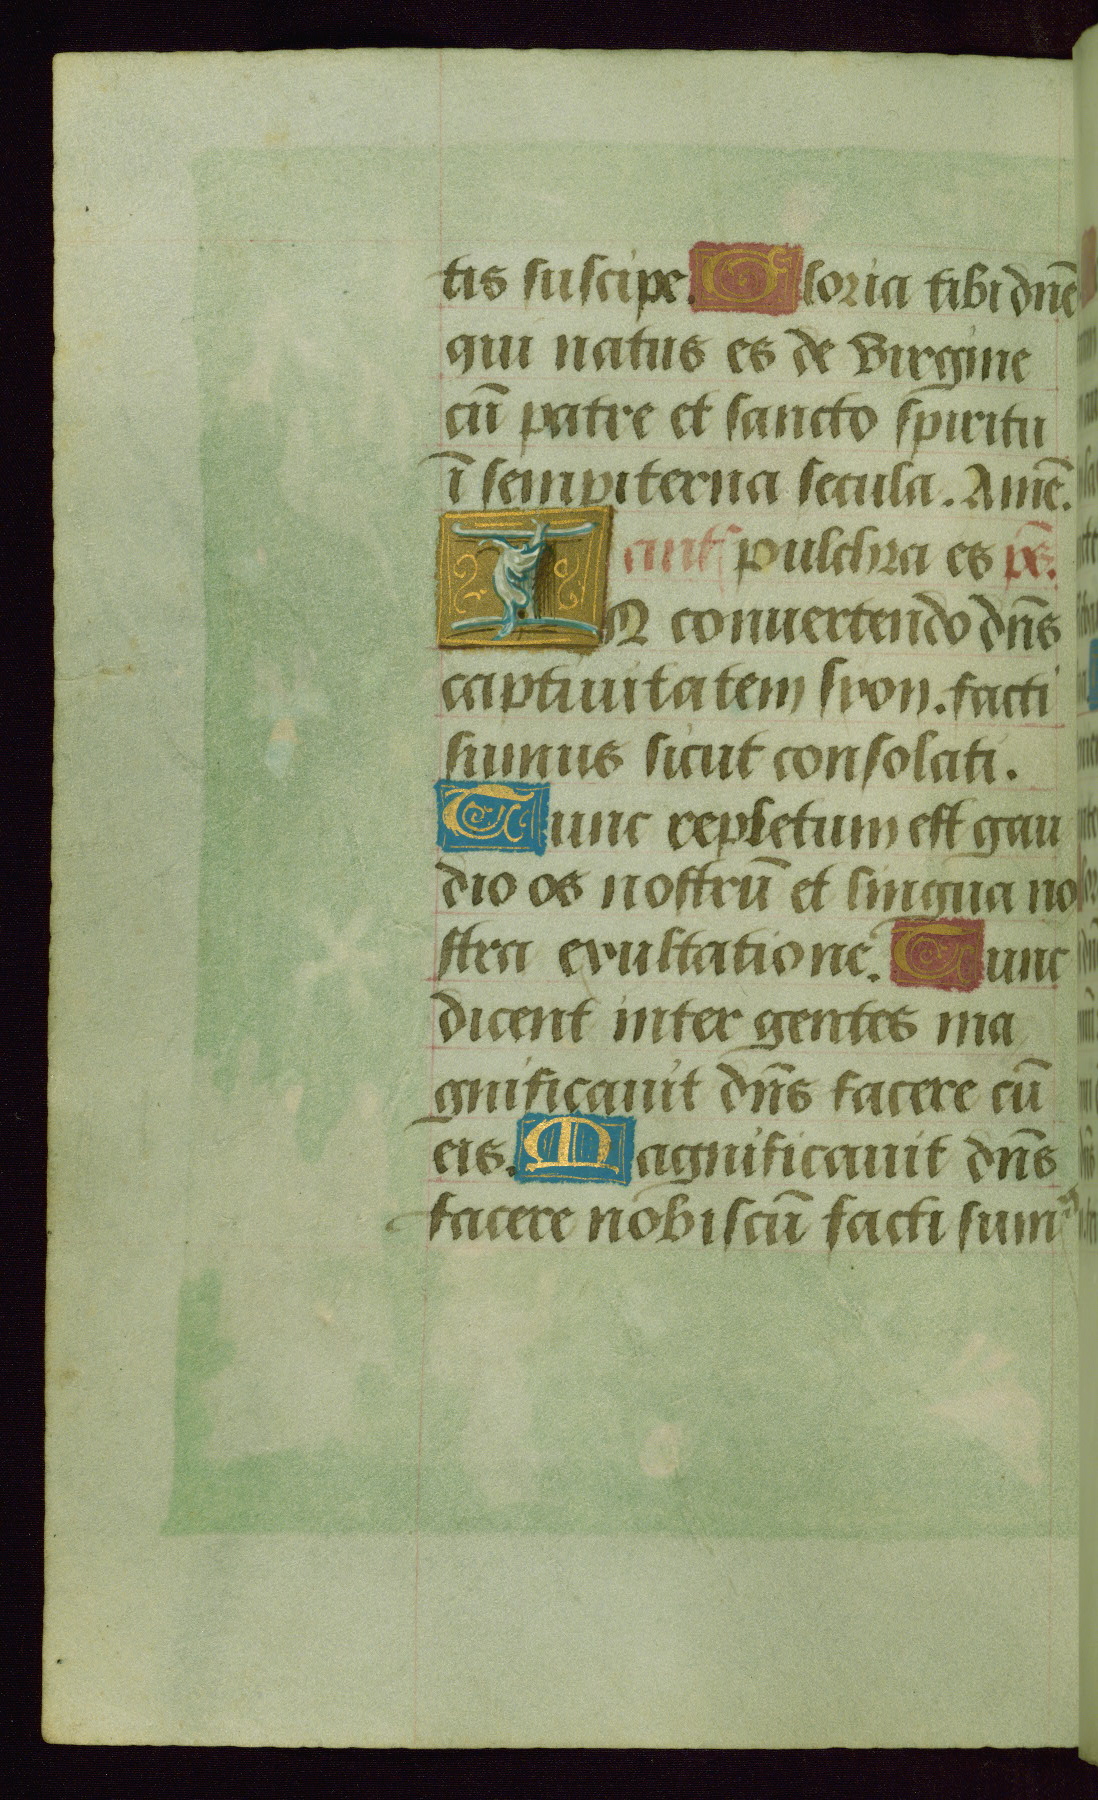 tis suscipe. Gloria tibi dn̄e
qui natus es de virgine
cū patre et sancto spiritu
ī sempiterna secula. Amē.
ant' pulchra es ps̄.
IN convertendo dn̄s
captiuitatem syon. facti
sumus sicut consolati.
Tunc repletum est gau
dio os nostrū et lingua no
stra exultatione. Tunc
dicent inter gentes ma
gnificauit dn̄s facere cū
eis. Magnificauit dn̄s
facere nobiscū facti sumꝰ